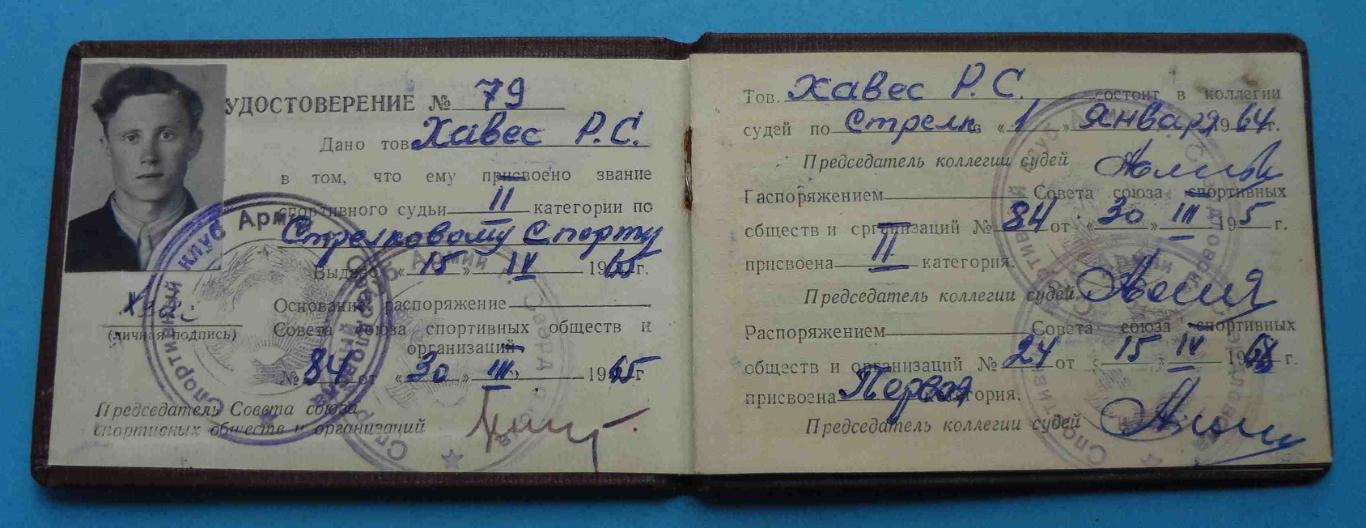 УДОСТОВЕРЕНИЕ № 79
Дано тов. Хавес Р.С.
в том, что ему присвоено звание
спортивного судьи II категории по
Стрелковому спорту
Выдано «15» IV 1965г.
(личная подпись)
Основание: распоряжение
Совета союза спортивных обществ и
организаций
№ 84 от «30» III 1965г
Председатель Совета союза
спортивных обществ и организаций
Спортивный клуб Армии
Тов. Хавес Р.С. состоит в коллегии
судей по стрелк с «1» Января 1964г.
Председатель коллегии судей
Распоряжением Совета союза спортивных
обществ и организаций № 84 от «30» III 1965г.
присвоена II категория.
Председатель коллегии судей
Распоряжением Совета союза спортивных
обществ и организаций № 24 от «15» IV 1968г.
присвоена Первая категория.
Председатель коллегии судей